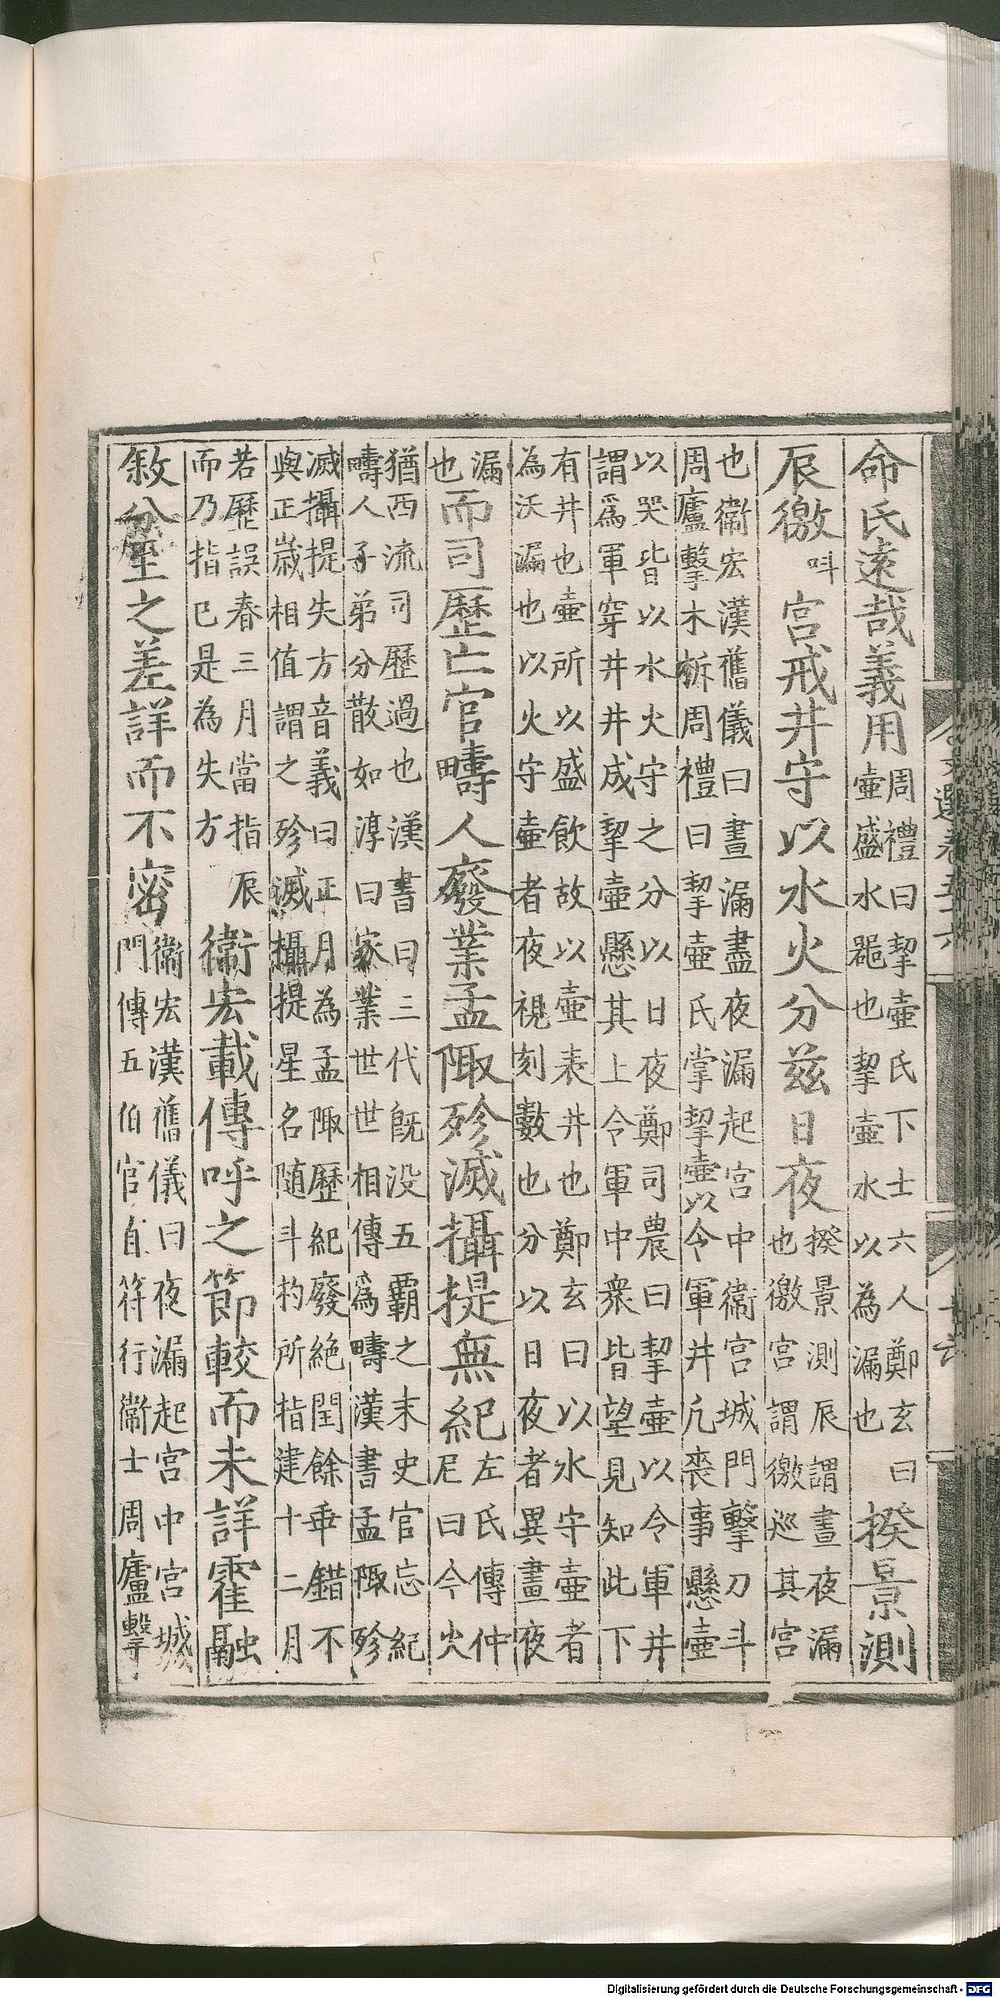 命氏遠哉義用周禮曰挈壺氏下士六人鄭玄曰壺盛水器也挈壺水以為漏也揆景測
辰徼叫宮戒井守以水火分茲日夜揆景測辰謂晝夜漏也徼宮謂徼巡其宮
也衞宏漢舊儀曰晝漏盡夜漏起宮中衞宮城門擊刀斗周廬擊木柝周禮曰挈壺氏掌挈壺以令軍井凡喪事懸壺
以哭皆以水火守之分以日夜鄭司農曰挈壺以令軍井謂爲軍穿井井成挈壺懸其上令軍中衆皆望見知此下
有井也壺所以盛飲故以壺表井也鄭玄曰以水守壺者為沃漏也以火守壺者夜視刻數也分以日夜者異晝夜
漏也而司歷亡官疇人廢業孟陬殄滅攝提無紀左氏傳仲尼曰今火
猶西流司歷過也漢書曰三代既没五覇之末史官忘紀疇人子弟分散如淳曰家業世世相傳爲疇漢書孟陬殄
滅攝提失方音義曰正月為孟陬歷紀廢絶閏餘乖錯不與正歲相值謂之殄滅攝提星名随斗杓所指建十二月
若歷誤春三月當指辰而乃指巳是為失方衞宏載傳呼之節較而未詳霍融
敘分至之差詳而不密衞宏漢舊儀曰夜漏起宮中宮城門傳五伯官直符行衞士周廬擊
文選卷五十六
Digitalisierung gefördert durch die Deutsche Forschungsgemeinschaft - DFG